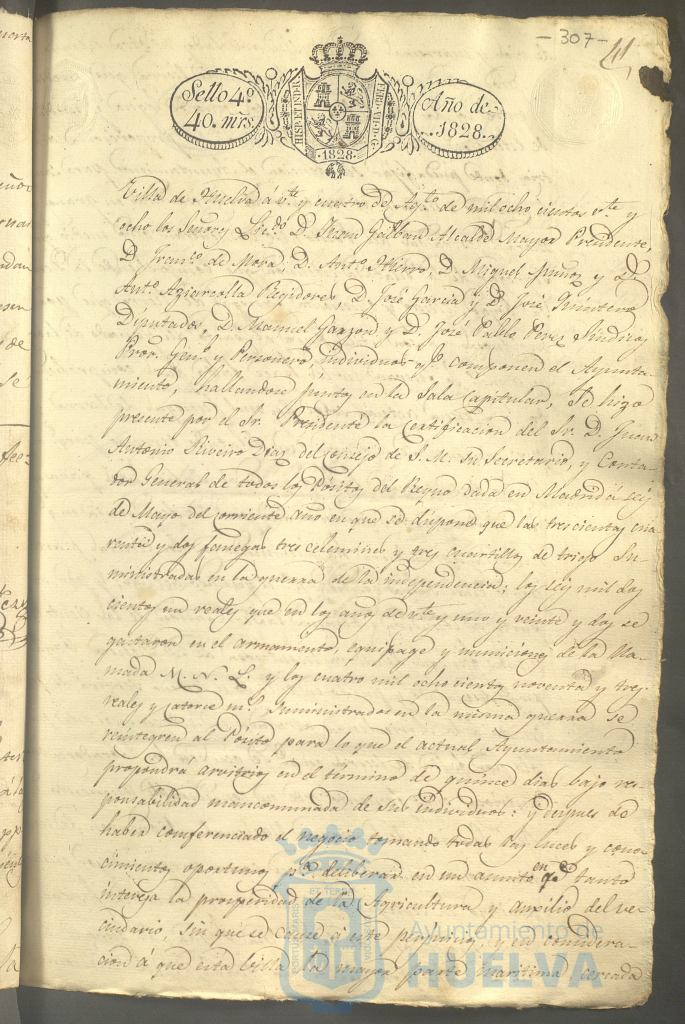 -307-
Sello 4º
40. mrs.
HISP. ET IND. R.
1828
Año de
1828.
Villa de Huelva á vte. y cuatro de Agto. de mil ocho cientos vte y
ocho los Señores D. Juan Alcalde Mayor Presidente,
D. Franco. de Mora, D. Anto. Hierro, D. Miguel Muñoz y D.
Anto. Regidores, D. José Garcia y D. José Quintero
Diputados, D. Manuel Garzon y D. José Pablo Perez Sindicos
Pror. Genl. y Personero, individuos qe. componen el Ayunta-
miento, hallandose juntos en la Sala Capitular, Se hizo
presente por el Sr. Presidente la Certificacion del Sr. D. Juan
Antonio Riveiro Diaz del consejo de S. M. su Secretario, y Conta-
dor General de todos los Pósitos del Reyno dada en Madrid á seis
de Mayo del corriente año en que se dispone que las trescientas cua
renta y dos fanegas tres celemines y tres cuartillos de trigo Su
ministradas en la guerra de la independencia; los seis mil dos
cientos un reales que en los años de vte y uno y veinte y dos se
gastaron en el armamento, equipage y municiones de la lla-
mada M. N. L. y los cuatro mil ocho cientos noventa y tres
reales y catorce ms. Suministrados en la misma guerra se
reintegren al Pósito para lo que el actual Ayuntamiento
propondrá arvitrios en el término de quince dias bajo res-
ponsabilidad mancomunada de sus individuos: y despues de
haber conferenciado el negocio tomando todas las luces y cono-
cimientos oportunos pa. deliberar en un asunto en qe tanto
interesa la prosperidad de la Agricultura y auxilio del ve-
cindario, sin que se cause á este perjuicios, y en considera-
cion á que esta Villa la mayor parte maritima cercada
Ayuntamiento de
HUELVA